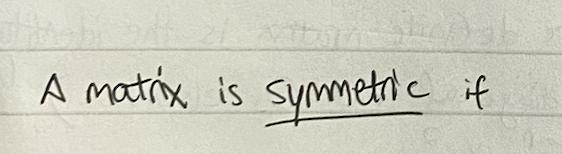 A matrix is symmetric if